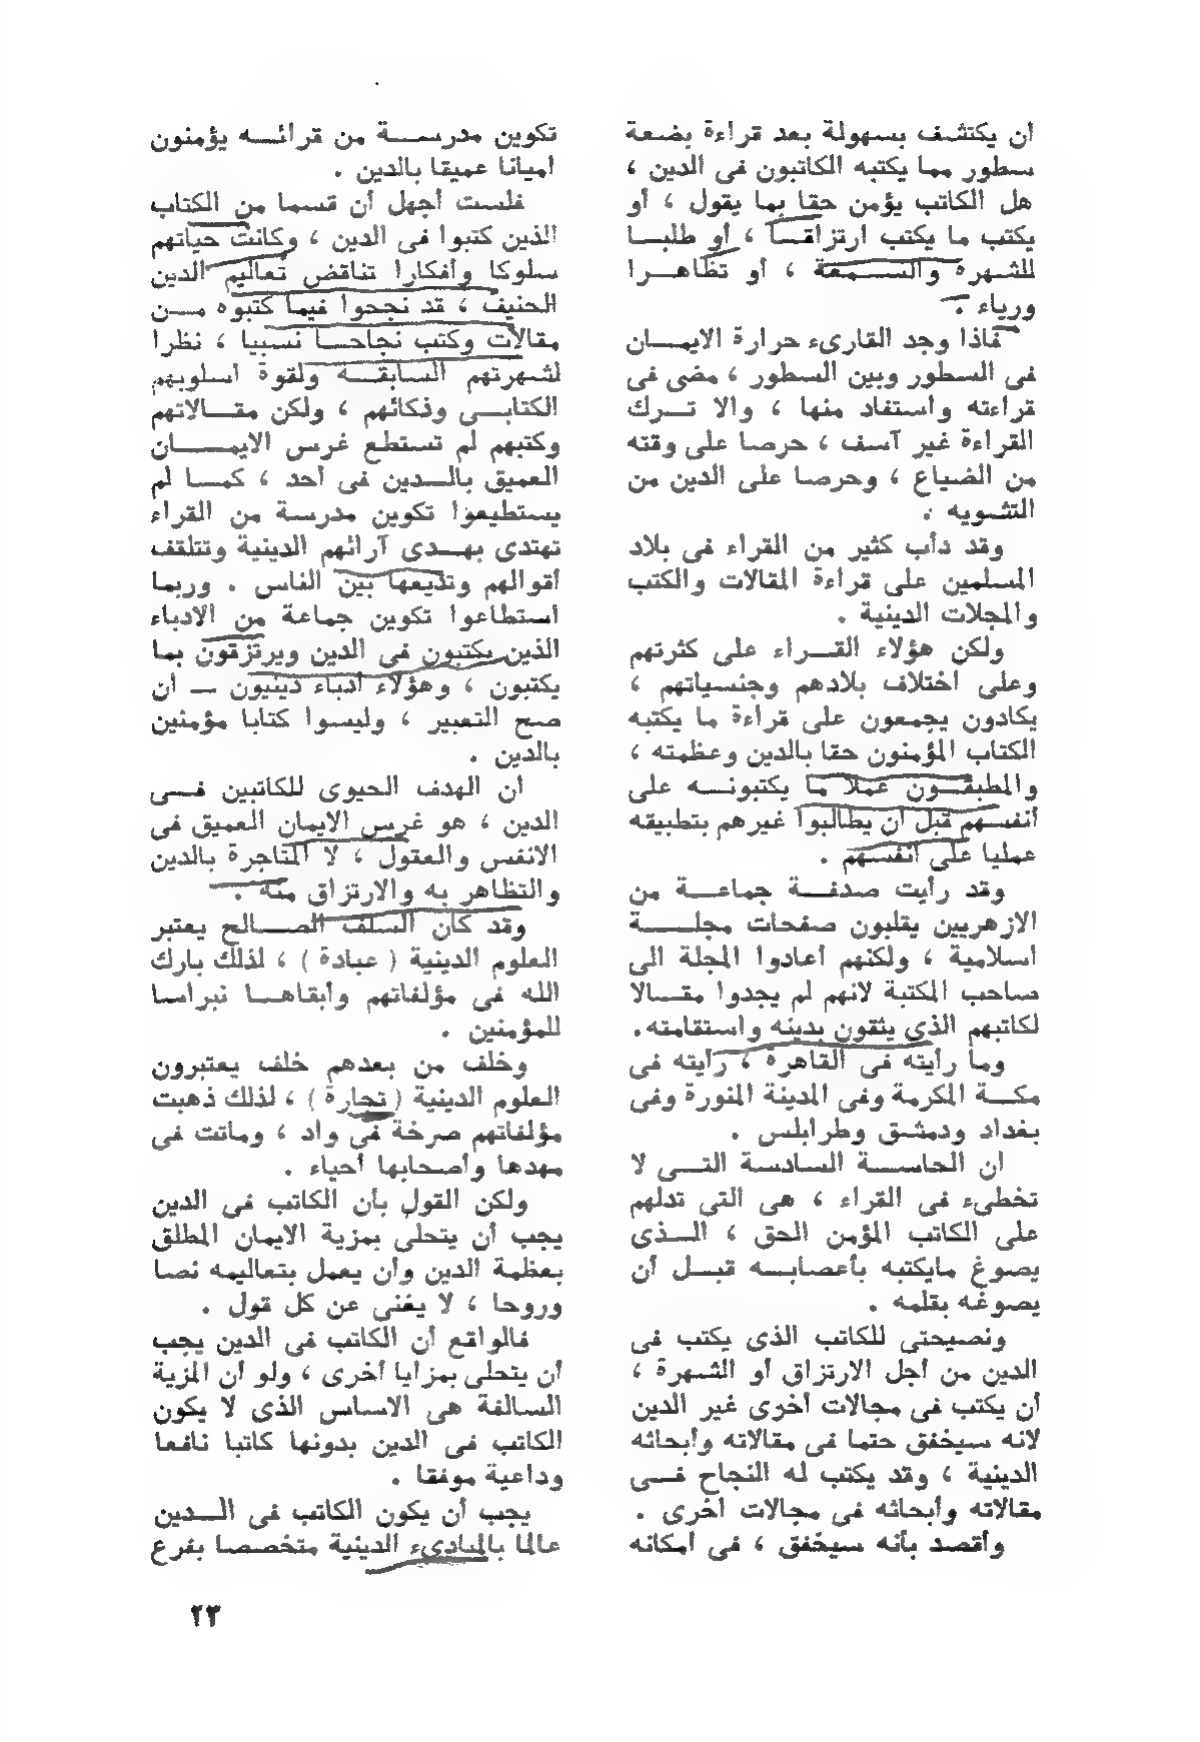 أن يكتشف بسهولة بعد قراءة بضعة
سطور مما يكتبه الكاتبون فى الدين ،
هل الكاتب يؤمن حقا بما يقول ، أو
يكتب ما يكتب ارتزاقــا ، أو طلبــا
للشهرة والســمعة ، أو تظاهــرا
ورياء .
فاذا وجد القارىء حرارة الايمــان
فى السطور وبين السطور ، مضى فى
قراءته واستفاد منها ، والا تــرك
القراءة غير آسف ، حرصا على وقته
من الضياع ، وحرصا على الدين من
التشويه .
وقد دأب كثير من القراء فى بلاد
المسلمين على قراءة المقالات والكتب
والمجلات الدينية .
ولكن هؤلاء القــراء على كثرتهم
وعلى اختلاف بلادهم وجنسياتهم ،
يكادون يجمعون على قراءة ما يكتبه
الكتاب المؤمنون حقا بالدين وعظمته ،
والمطبقــون عملا ما يكتبونــه على
أنفسهم قبل أن يطالبوا غيرهم بتطبيقه
عمليا على أنفسهم .
وقد رأيت صدفــة جماعــة من
الازهريين يقلبون صفحات مجلــــة
اسلامية ، ولكنهم أعادوا المجلة الى
صاحب المكتبة لانهم لم يجدوا مقــالا
لكاتبهم الذى يثقون بدينه واستقامته.
وما رأيته فى القاهرة ، رأيته فى
مكــة المكرمة وفى المدينة المنورة وفى
بغداد ودمشق وطرابلس .
ان الحاســة السادسة التــى لا
تخطىء فى القراء ، هى التى تدلهم
على الكاتب المؤمن الحق ، الــذى
يصوغ مايكتبه بأعصابــه قبــل أن
يصوغه بقلمه .
ونصيحتى للكاتب الذى يكتب فى
الدين من أجل الارتزاق أو الشهرة ،
أن يكتب فى مجالات أخرى غير الدين
لانه سيخفق حتما فى مقالاته وأبحاثه
الدينية ، وقد يكتب له النجاح فــى
مقالاته وأبحاثه فى مجالات اخرى .
وأقصد بأنه سيخفق ، فى امكانه
تكوين مدرســـة من قرائــه يؤمنون
ايمانا عميقا بالدين .
فلست أجهل أن قسما من الكتاب
الذين كتبوا فى الدين ، وكانت حياتهم
سلوكا وأفكارا تناقض تعاليم الدين
الحنيف ، قد نجحوا فيما كتبوه مــن
مقالات وكتب نجاحــا نسبيا ، نظرا
لشهرتهم السابقــه ولقوة أسلوبهم
الكتابــى وذكائهم ، ولكن مقــالاتهم
وكتبهم لم تستطع غرس الايمــــان
العميق بالــدين فى أحد ، كمــا لم
يستطيعوا تكوين مدرسة من القراء
تهتدى بهــدى آرائهم الدينية وتتلقف
أقوالهم وتذيعها بين الناس . وربما
استطاعوا تكوين جماعة من الادباء
الذين يكتبون فى الدين ويرتزقون بما
يكتبون ، وهؤلاء أدباء دينيون ــ ان
صح التعبير ، وليسوا كتابا مؤمنين
بالدين .
ان الهدف الحيوى للكاتبين فــى
الدين ، هو غرس الايمان العميق فى
الانفس والعقول ، لا المتاجرة بالدين
والتظاهر به والارتزاق منه .
وقد كان السلف الصــالح يعتبر
العلوم الدينية ( عبادة ) ، لذلك بارك
الله فى مؤلفاتهم وأبقاهــا نبراسا
للمؤمنين .
وخلف من بعدهم خلف يعتبرون
العلوم الدينية ( تجارة ) ، لذلك ذهبت
مؤلفاتهم صرخة فى واد ، وماتت فى
مهدها وأصحابها أحياء .
ولكن القول بأن الكاتب فى الدين
يجب أن يتحلى بمزية الايمان المطلق
بعظمة الدين وأن يعمل بتعاليمه نصا
وروحا ، لا يغنى عن كل قول .
فالواقع أن الكاتب فى الدين يجب
أن يتحلى بمزايا أخرى ، ولو أن المزية
السالفة هى الاساس الذى لا يكون
الكاتب فى الدين بدونها كاتبا نافعا
وداعية موفقا .
يجب أن يكون الكاتب فى الــدين
عالما بالمبادىء الدينية متخصصا بفرع
٢٣